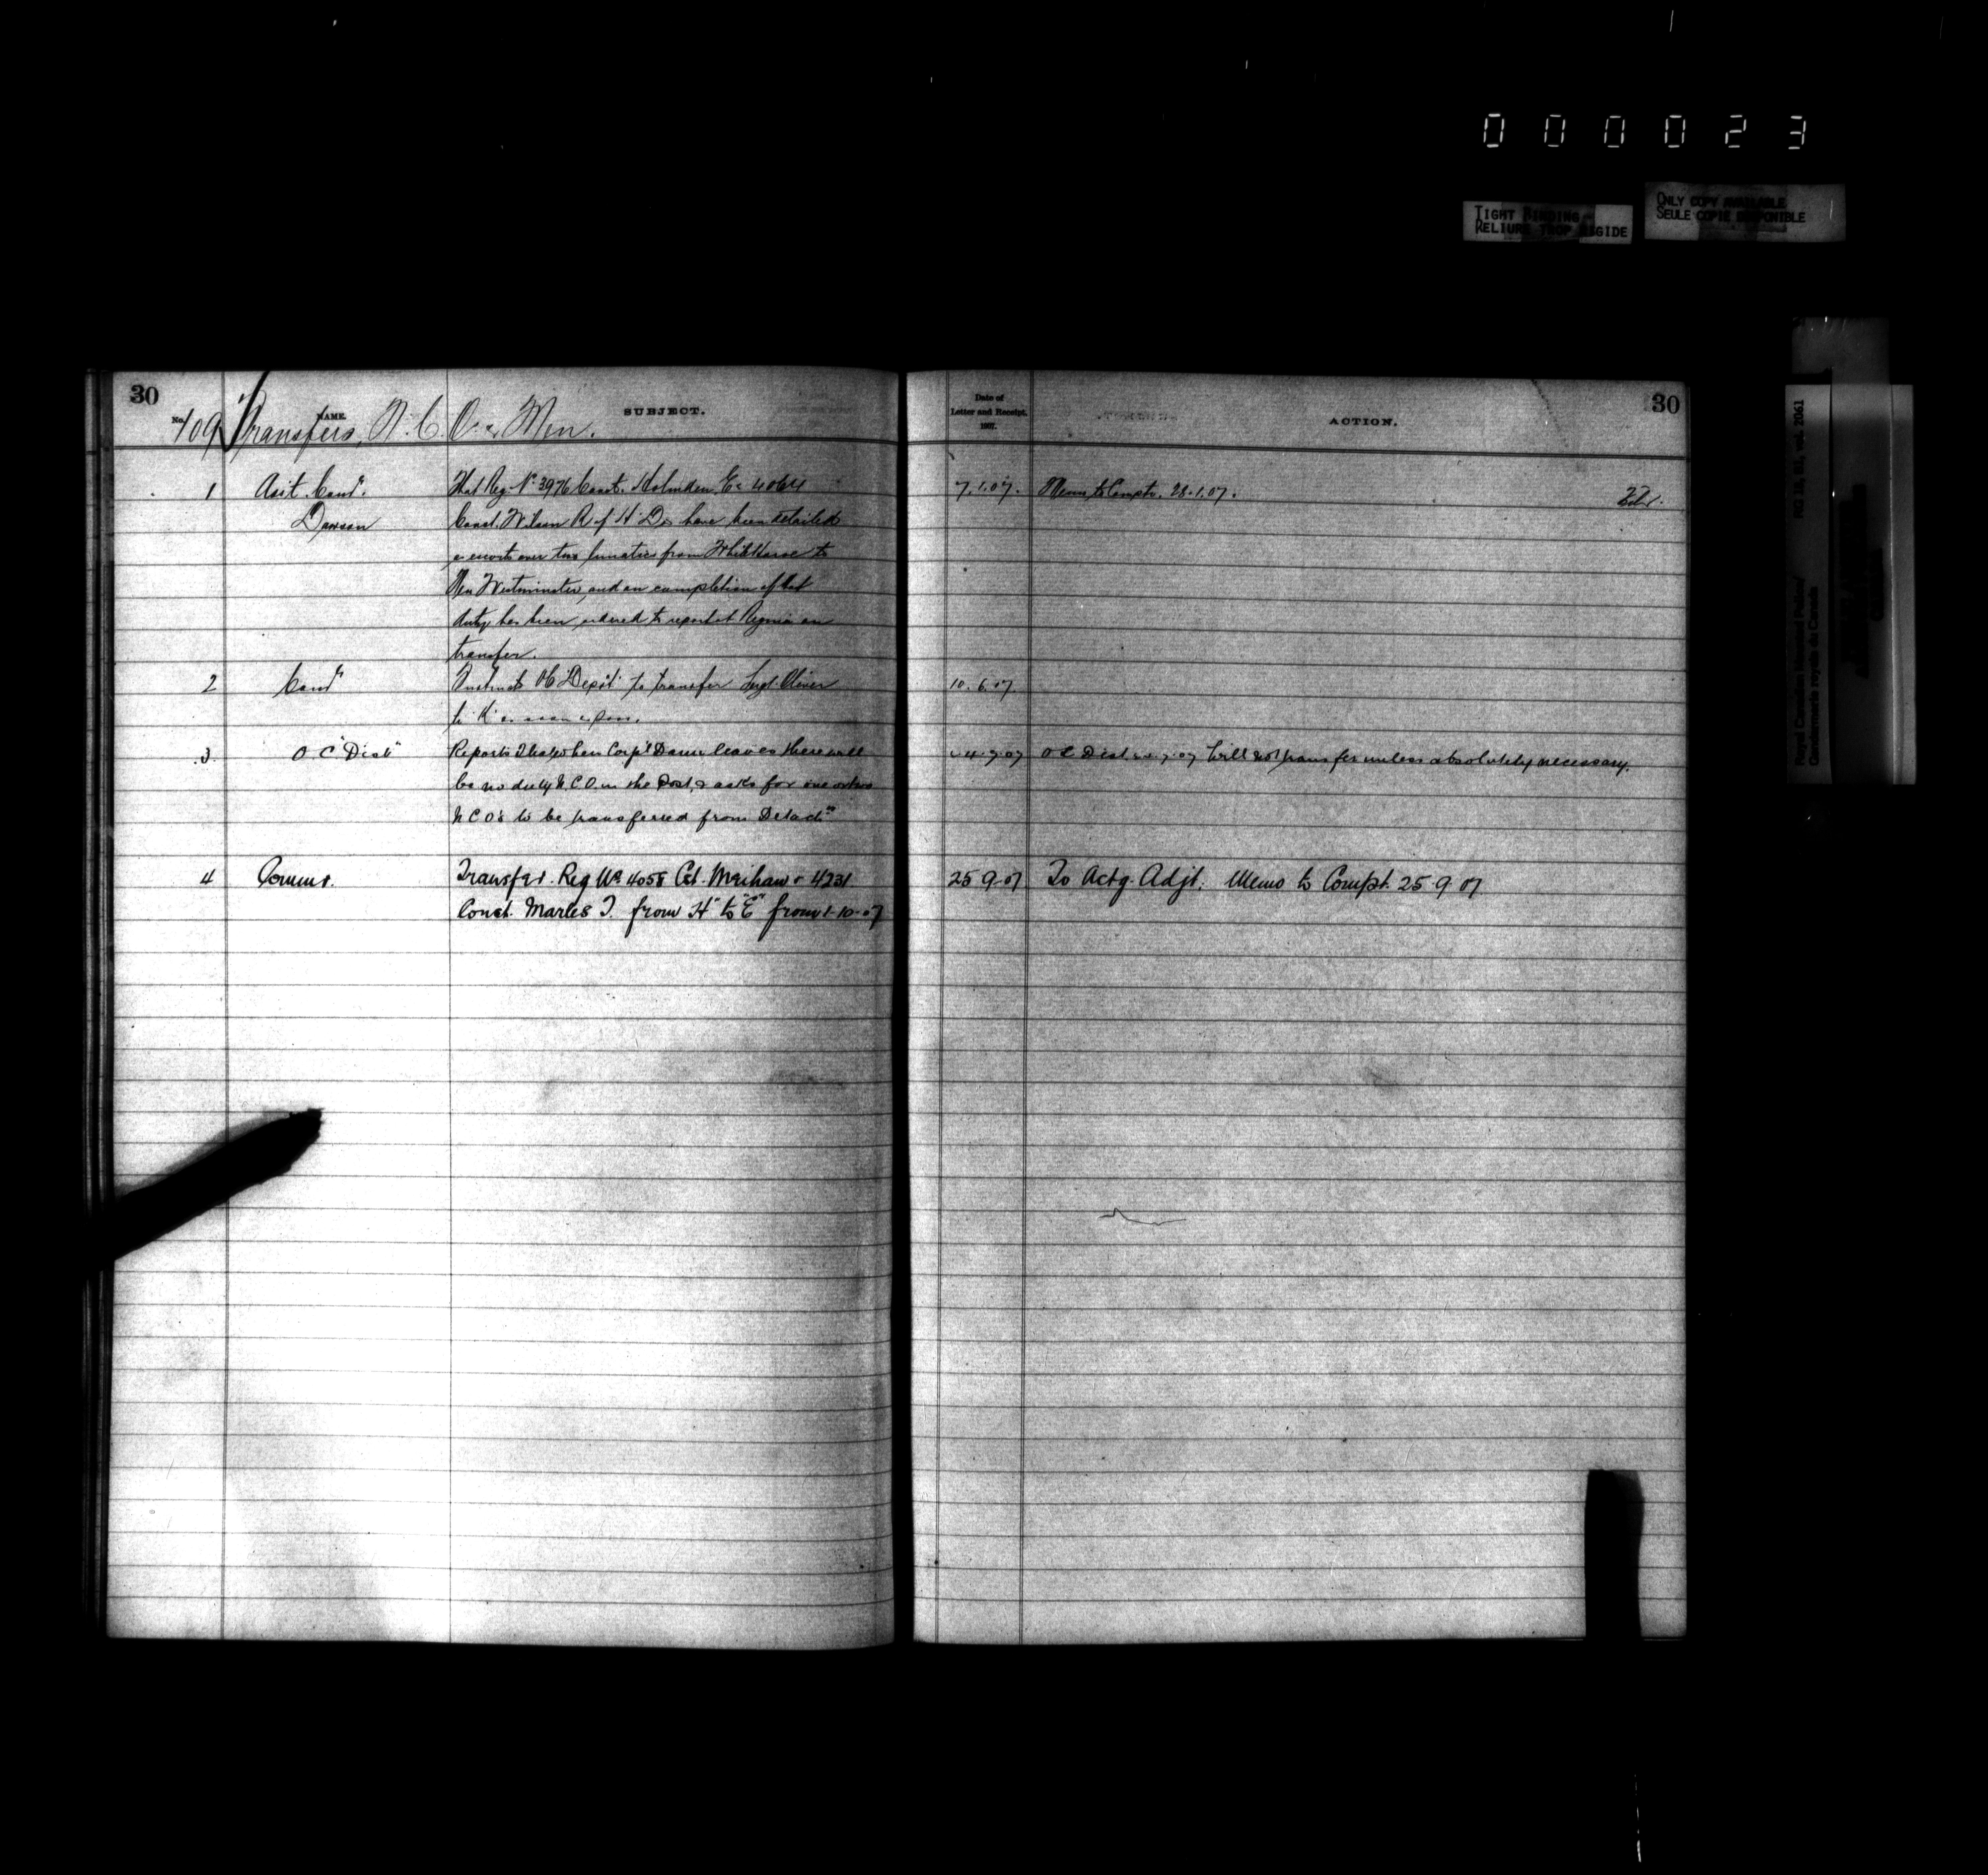 000023
TIGHT BINDING
RELIURE TROP RIGIDE
ONLY COPY AVAILABLE
SEULE COPIE DISPONIBLE
Royal Canadian Mounted Police/
Gendarmerie royale du Canada
RG 18, B1, vol. 2061
30
No. 109
NAME.
SUBJECT.
Transfers, N.C.O.s Men.
Date of
Letter and Receipt.
1907.
ACTION.
30
1 Asst. Comr. That Reg. No. 3976 Const. Holmden E. & 4064 7.1.07. Memo to Compt. 28.1.07.
Dawson Const. Wilson R. of "H" Div have been detailed
as escorts over two lunatics from White Horse to
New Westminster, and on completion of that
duty has been ordered to report at Regina on
transfer.
2 Comr Instructs OC "Depôt" to transfer Sergt. Oliver 10.6.07
to "K" as soon as poss.
3 O.C "Dist" Reports that when Corp'l Dann leaves there will 4.7.07 OC Dist. 7.07 Will not transfer unless absolutely necessary.
be no duty N.C.O. in the Post, & asks for one or two
N.C.O's to be transferred from Detach'ts
4 Commr. Transfer. Reg No 4058 Cst. Meihaw & 4231 25.9.07 To Actg. Adjt. Memo to Compt. 25.9.07
Const. Marles T. from "H" to "E" from 1-10-07